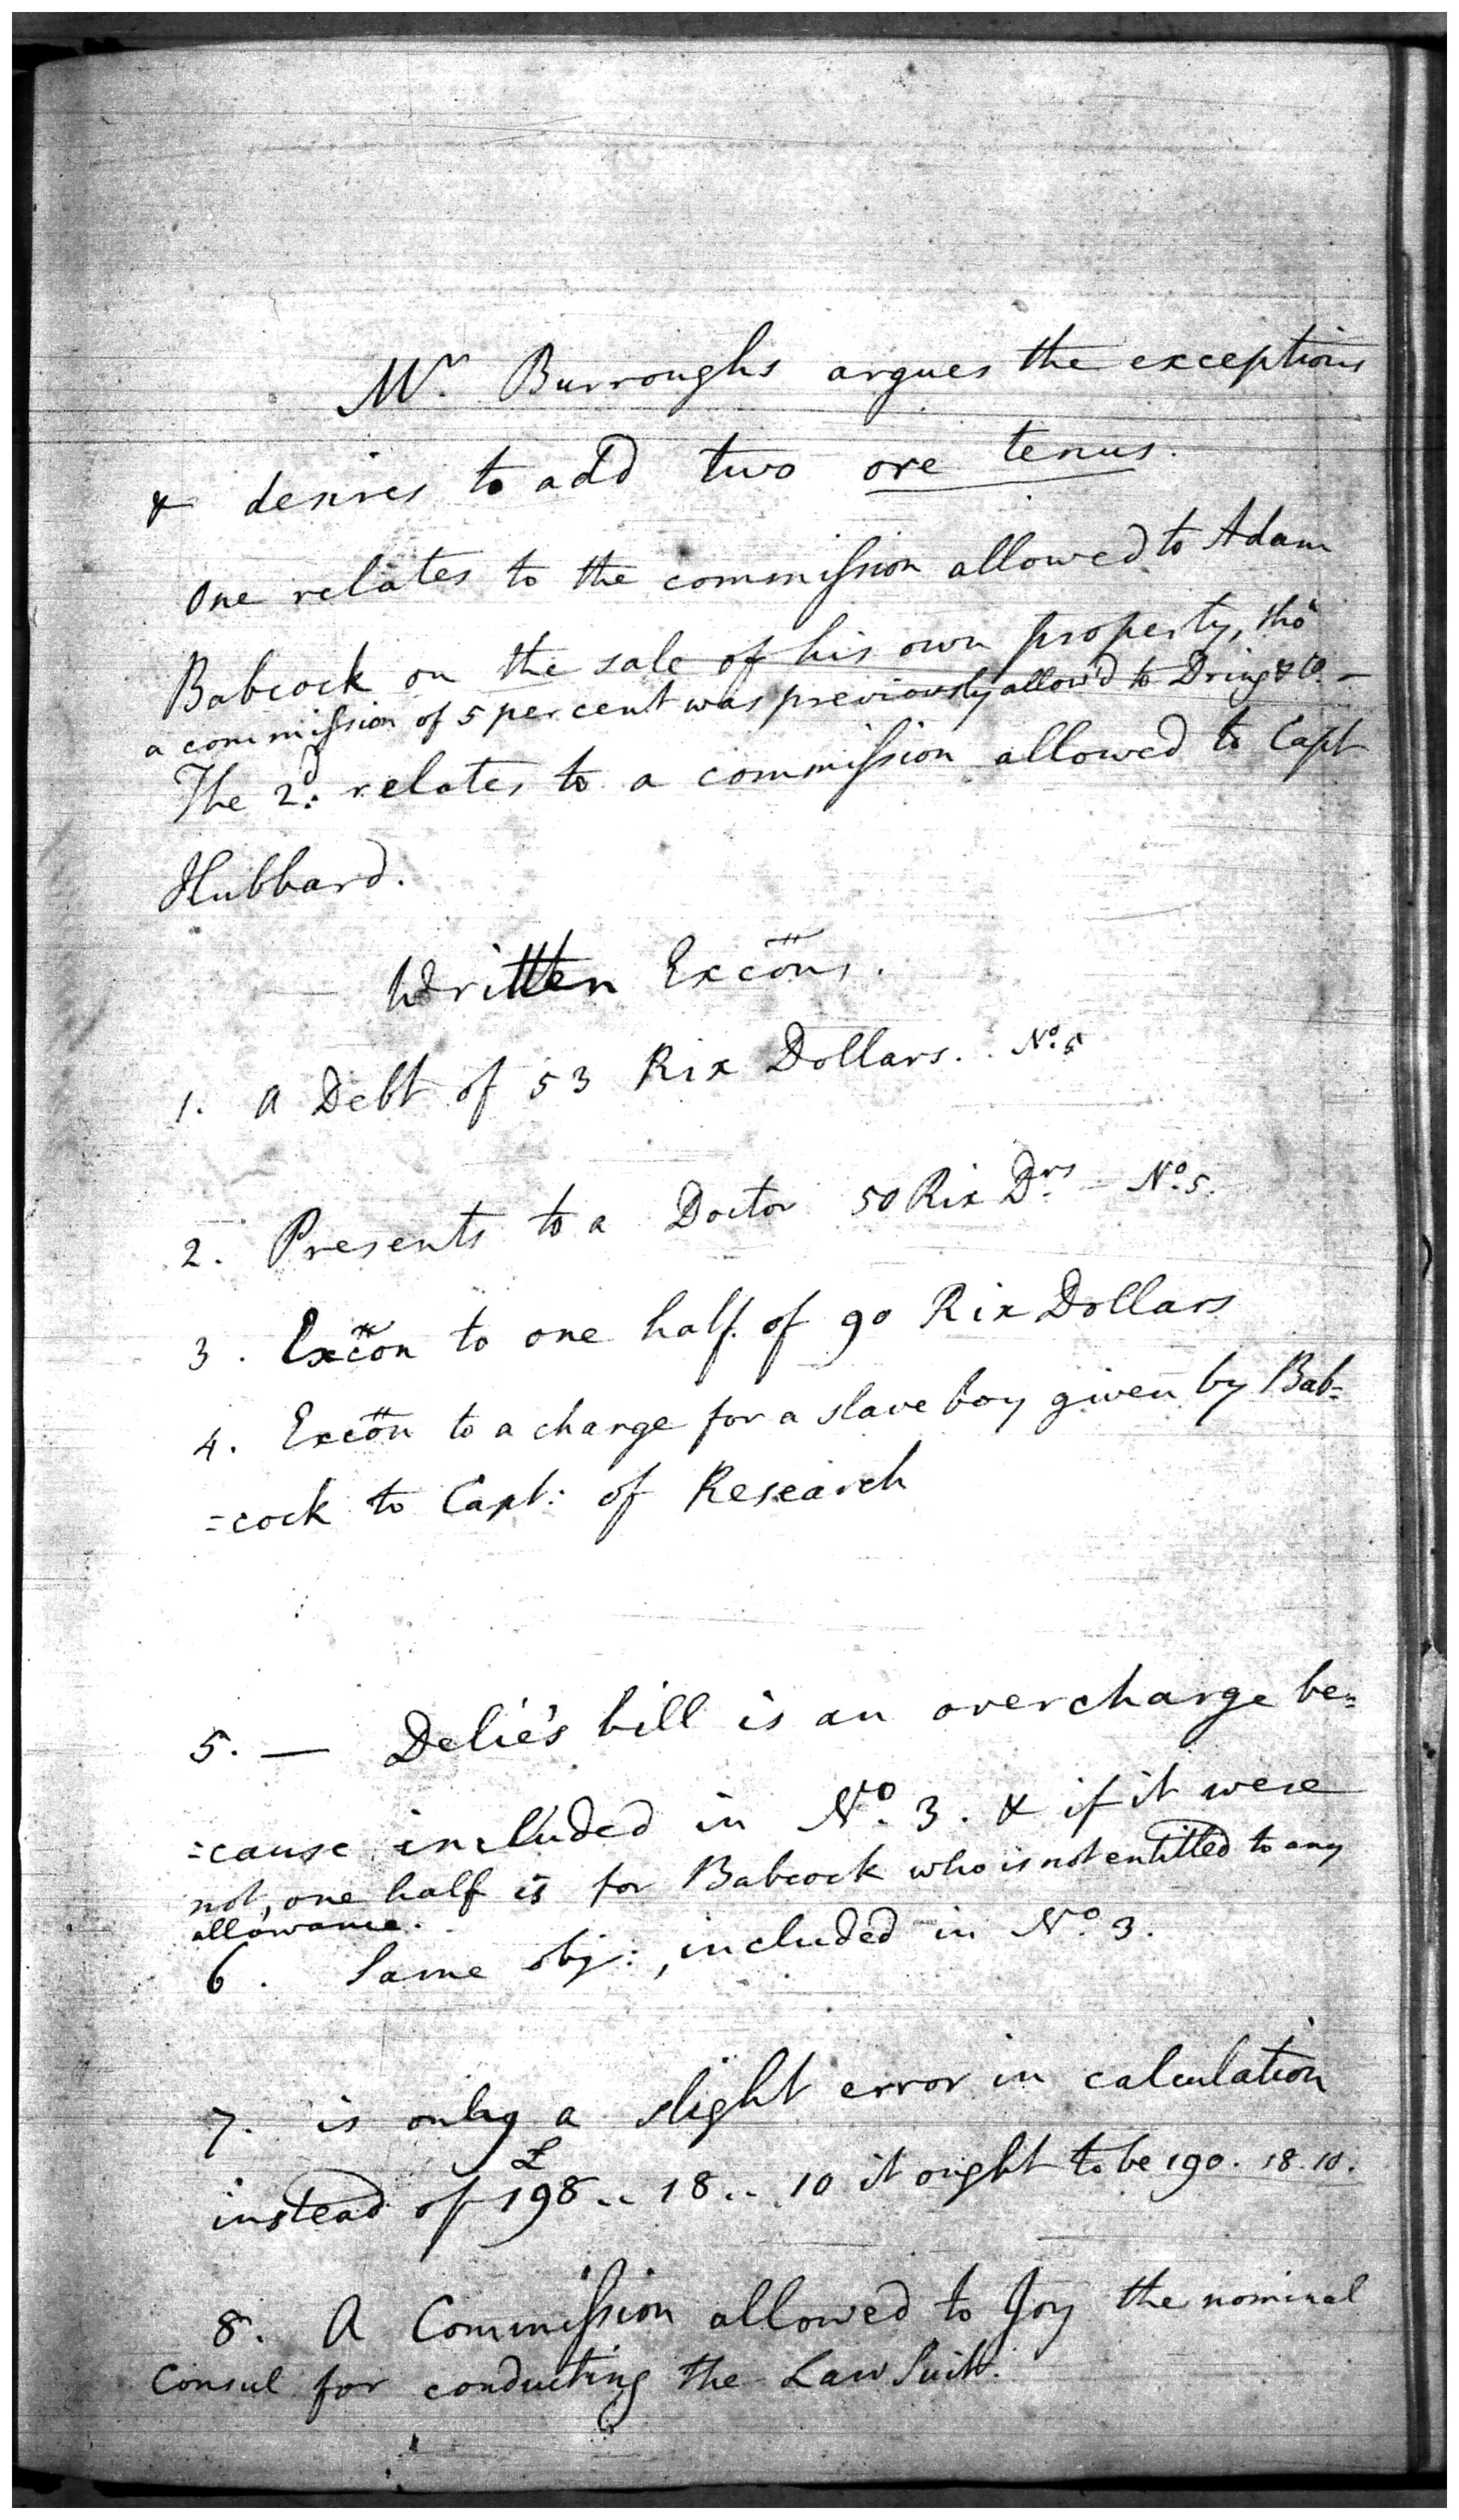 Mr. Burroughs argues the exceptions
& desires to add two ore tenus.
One relates to the commission allowed to Adam
Babcock on the sale of his own property, tho'
a commission of 5 per cent was previously allow'd to Dring & Co. —
The 2d. relates to a commission allowed to Capt
Hubbard.
Written Excõns.
1. A Debt of 53 Rix Dollars. No. 5
2. Presents to a Doctor 50 Rix Drs. — No. 5.
3. Excõn to one half of 90 Rix Dollars
4. Excõn to a charge for a slave boy given by Bab=
=cock to Capt: of Research
5. — Delie's bill is an overcharge be=
=cause included in No. 3. & if it were
not, one half is for Babcock who is not entitled to any
allowance.
6. Same obj:, included in No. 3.
7. is only a slight error in calculation
instead of £198..18..10 it ought to be 190.18.10.
8. A Commission allowed to Joy the nominal
Consul for conducting the Law Suit.